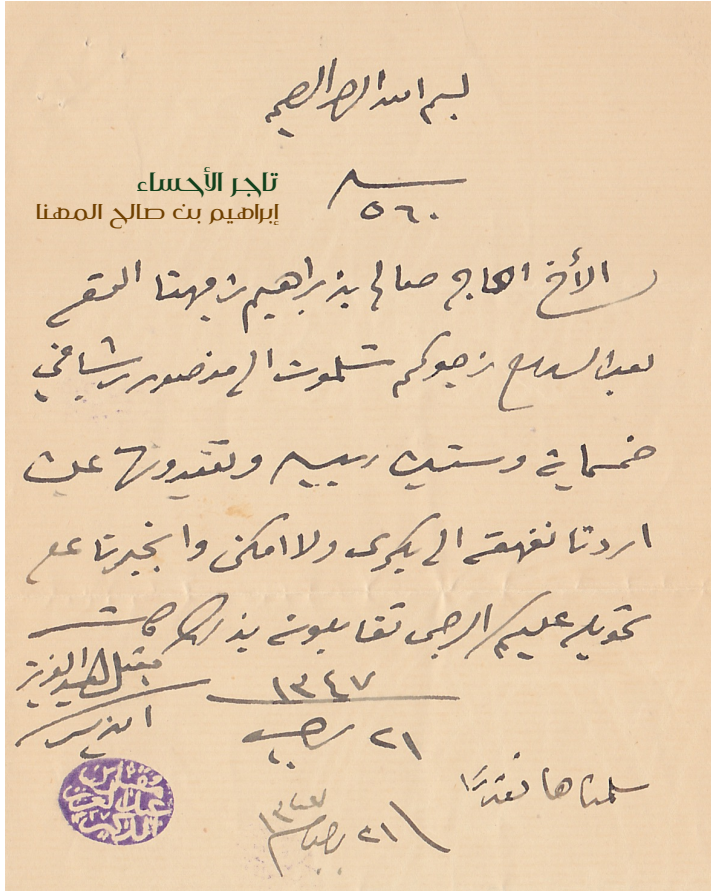 بسم الله الرحمن الرحيم
تاجر الأحساء
إبراهيم بن صالح المهنا
٥٦٠
الأخ الحاج صالح بن براهيم بن مهنا المحترم
بعد السلام نرجوكم تسلمون الى منصور بن شامخي
خمسماية وستين ربيه وتقيدونها علينا
اردنا نفهقه الى بكره ولا امكن وانجبرنا على
تحويله عليكم الرجى تقابلونه بذلك
مقبل العبد العزيز
الذكير
١٣٤٧
٢١ رجب
سلمناها نقدًا
٢١ رجب ١٣٤٧